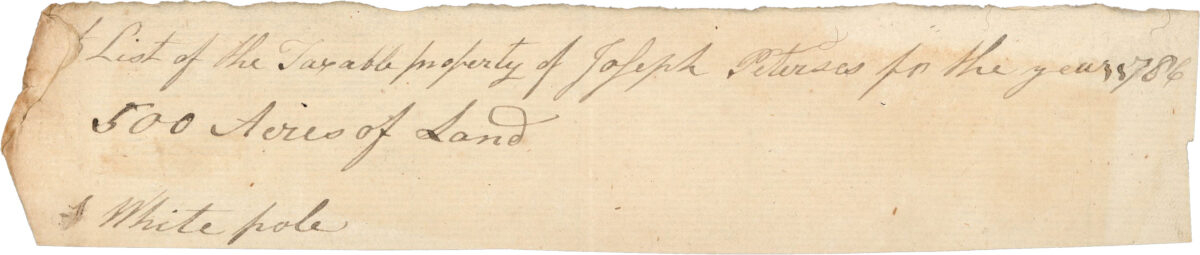 List of the Taxable property of Joseph Peterses for the year 1786
500 Acres of Land
1 White pole